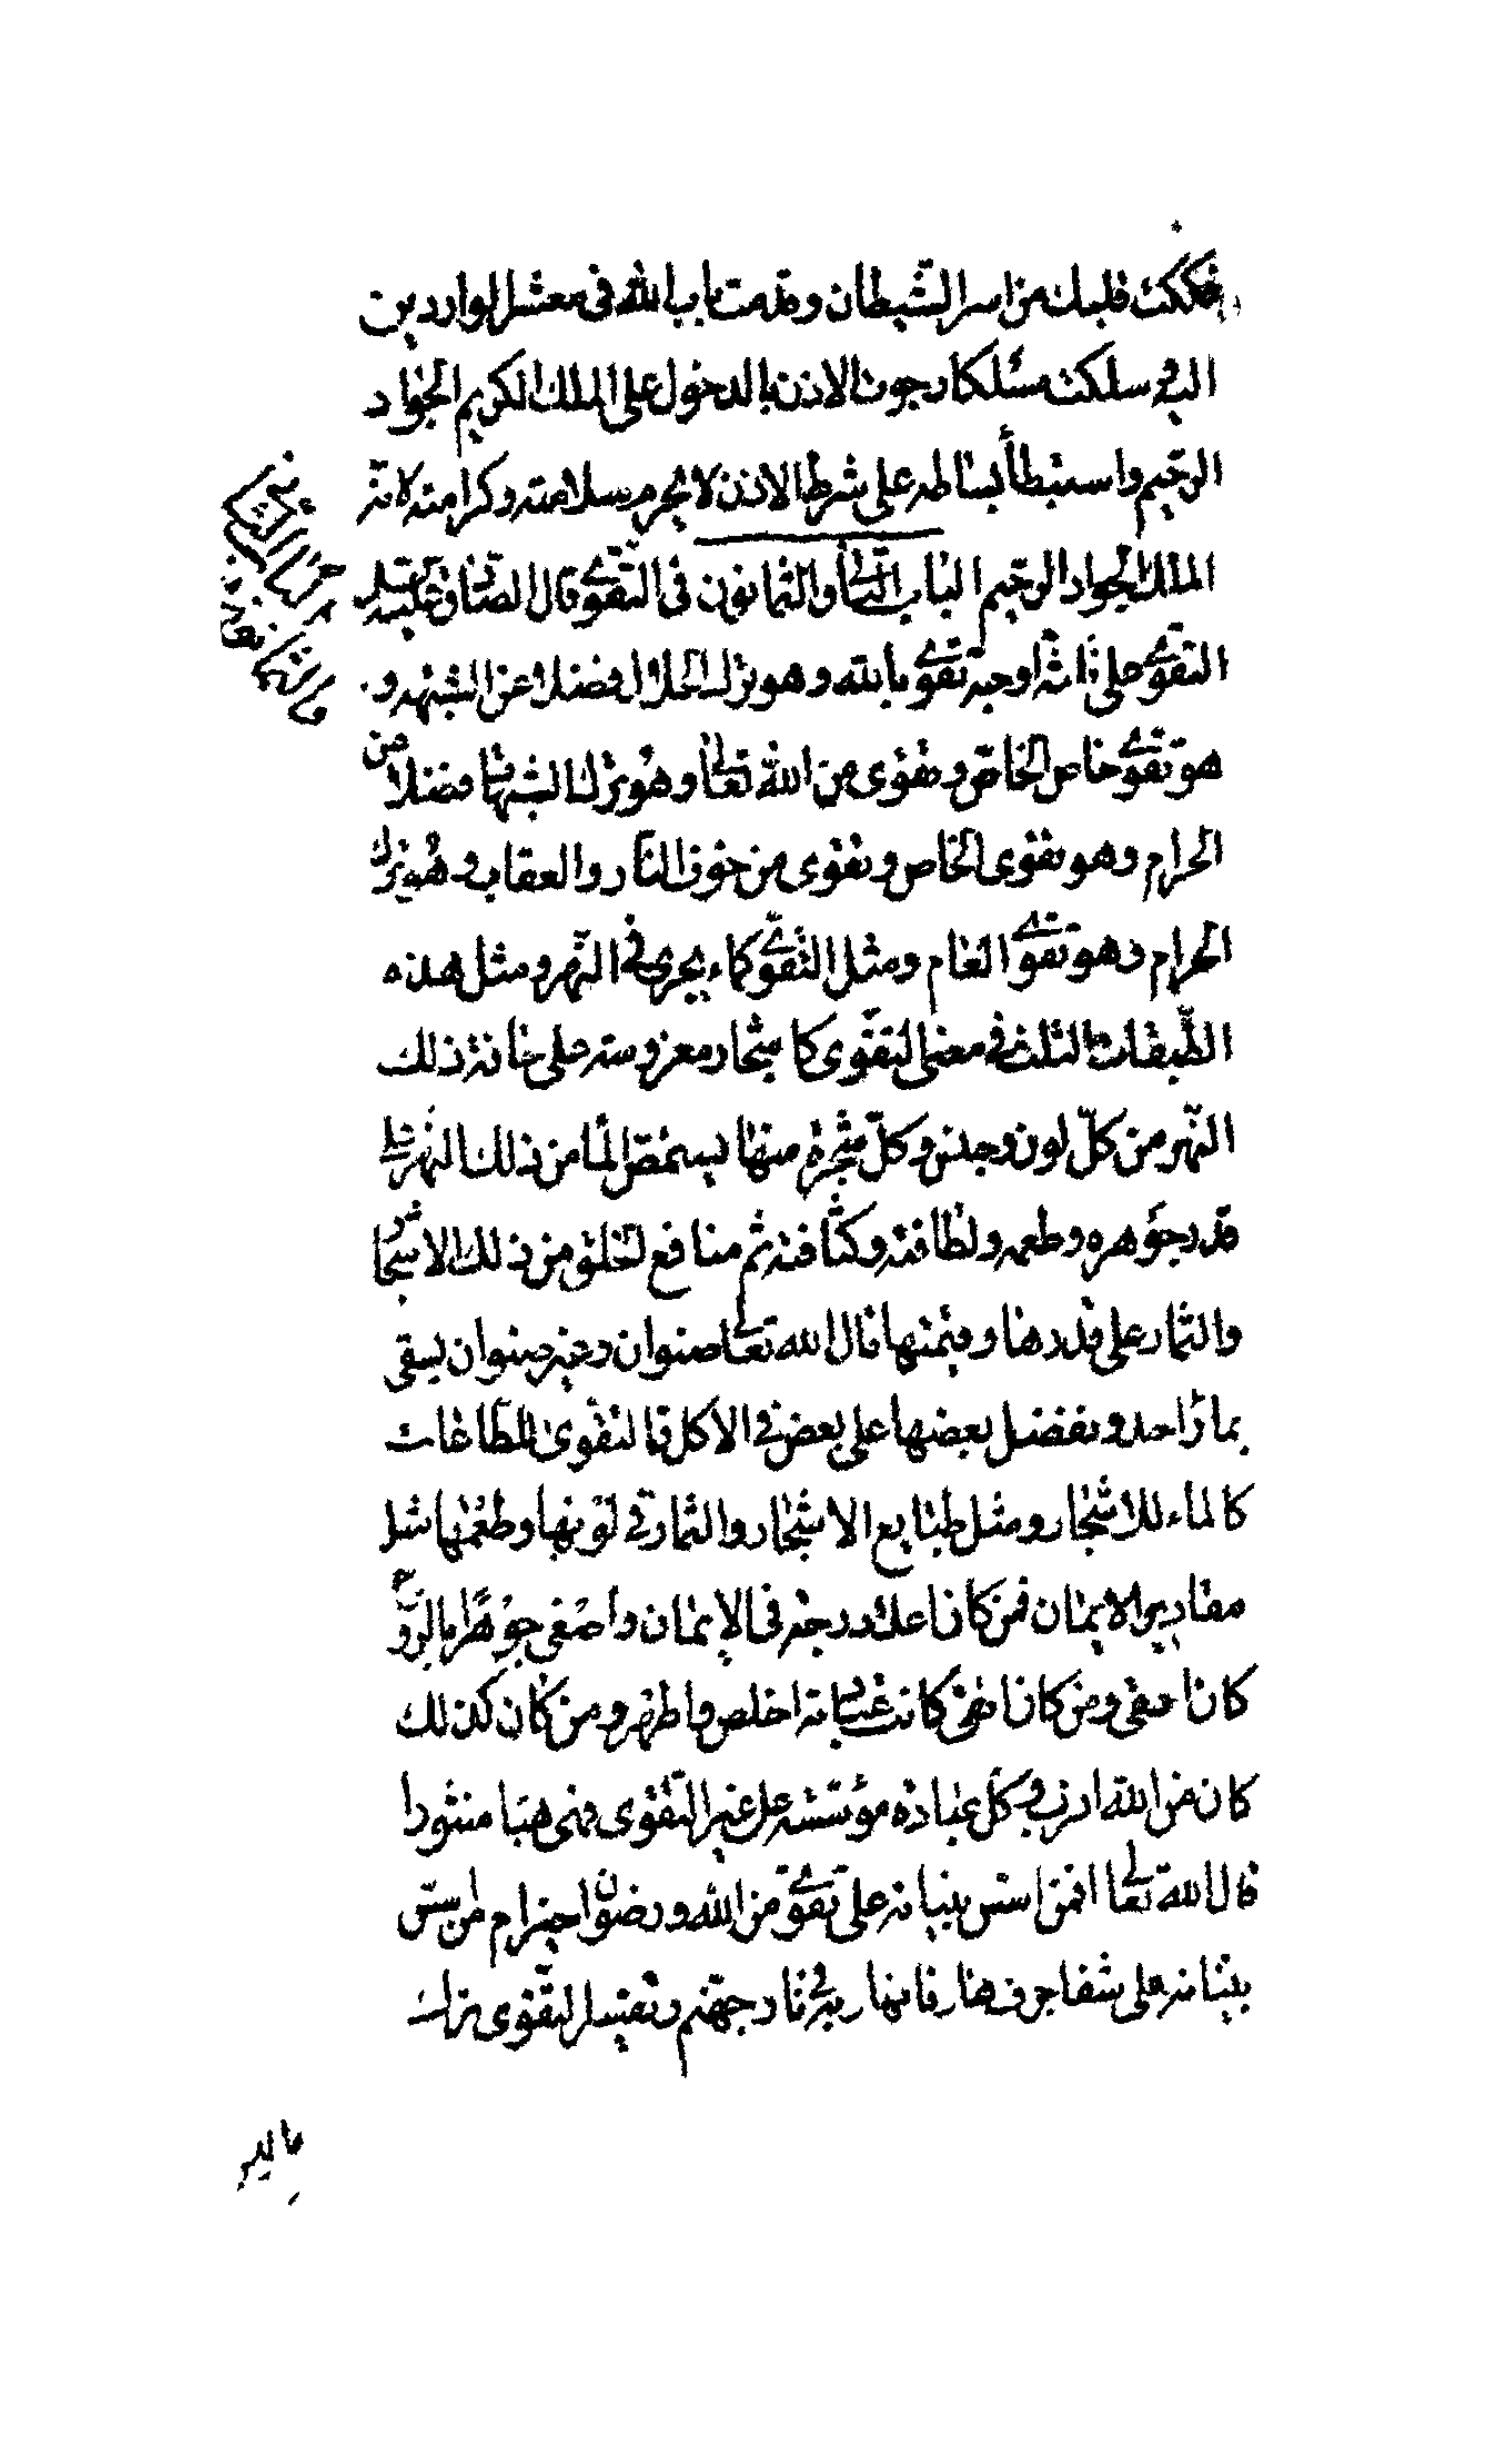 فككت قلبك من اسر الشيطان وقدمت باب الله فى معشر الواردين
اليه سلكت مسلكا رجوت الاذن بالدخول على الملك الكريم الجواد
الرحيم واستبطأ بساطه على شرط الاذن لا يحرم سلامته وكرامته لانه
الملك الجواد الرحيم الباب الثانى والثمانون فى التقوى قال الصادق عليه السلم
التقوى على ثلثة اوجه تقوى بالله وهو ترك الحلال فضلا عن الشبهه و
هو تقوى خاص الخاص وتقوى من الله تعالى وهو ترك الشبهات فضلا من
الحرام وهو تقوى الخاص وتقوى من خوف النار والعقاب وهو ترك
الحرام وهو تقوى العام ومثل التقوى كماء يجرى فى النهر ومثل هذه
الطبقات الثلث فى معنى التقوى كاشجار مغروسه على حافة ذلك
النهر من كل لون وجنس وكل شجرة منها يستمص الما من ذلك النهر على
قدر جوهره وطعمه ولطافته وكثافته ثم منافع الخلق من ذلك الاشجار
والثمار على قدرها وقيمتها قال الله تعالى صنوان وغير صنوان يسقى
بماء واحد ونفضل بعضها على بعض فى الاكل فالتقوى للطاعات
كالماء للاشجار ومثل طبايع الاشجار والثمار فى لونها وطعمها مثل
مقادير الايمان فمن كان اعلى درجة فى الايمان واصفى جوهرا بالروح
كان اتقى ومن كان اتقى كانت عبادته اخلص واطهر ومن كان كذلك
كان من الله اقرب وكل عبادة مؤسسه على غير التقوى فهى هباء منثورا
قال الله تعالى افمن اسس بنيانه على تقوى من الله ورضوان خير ام من اسس
بنيانه على شفا جرف هار فانهار به فى نار جهنم وتفسير التقوى ترك
ما ليس